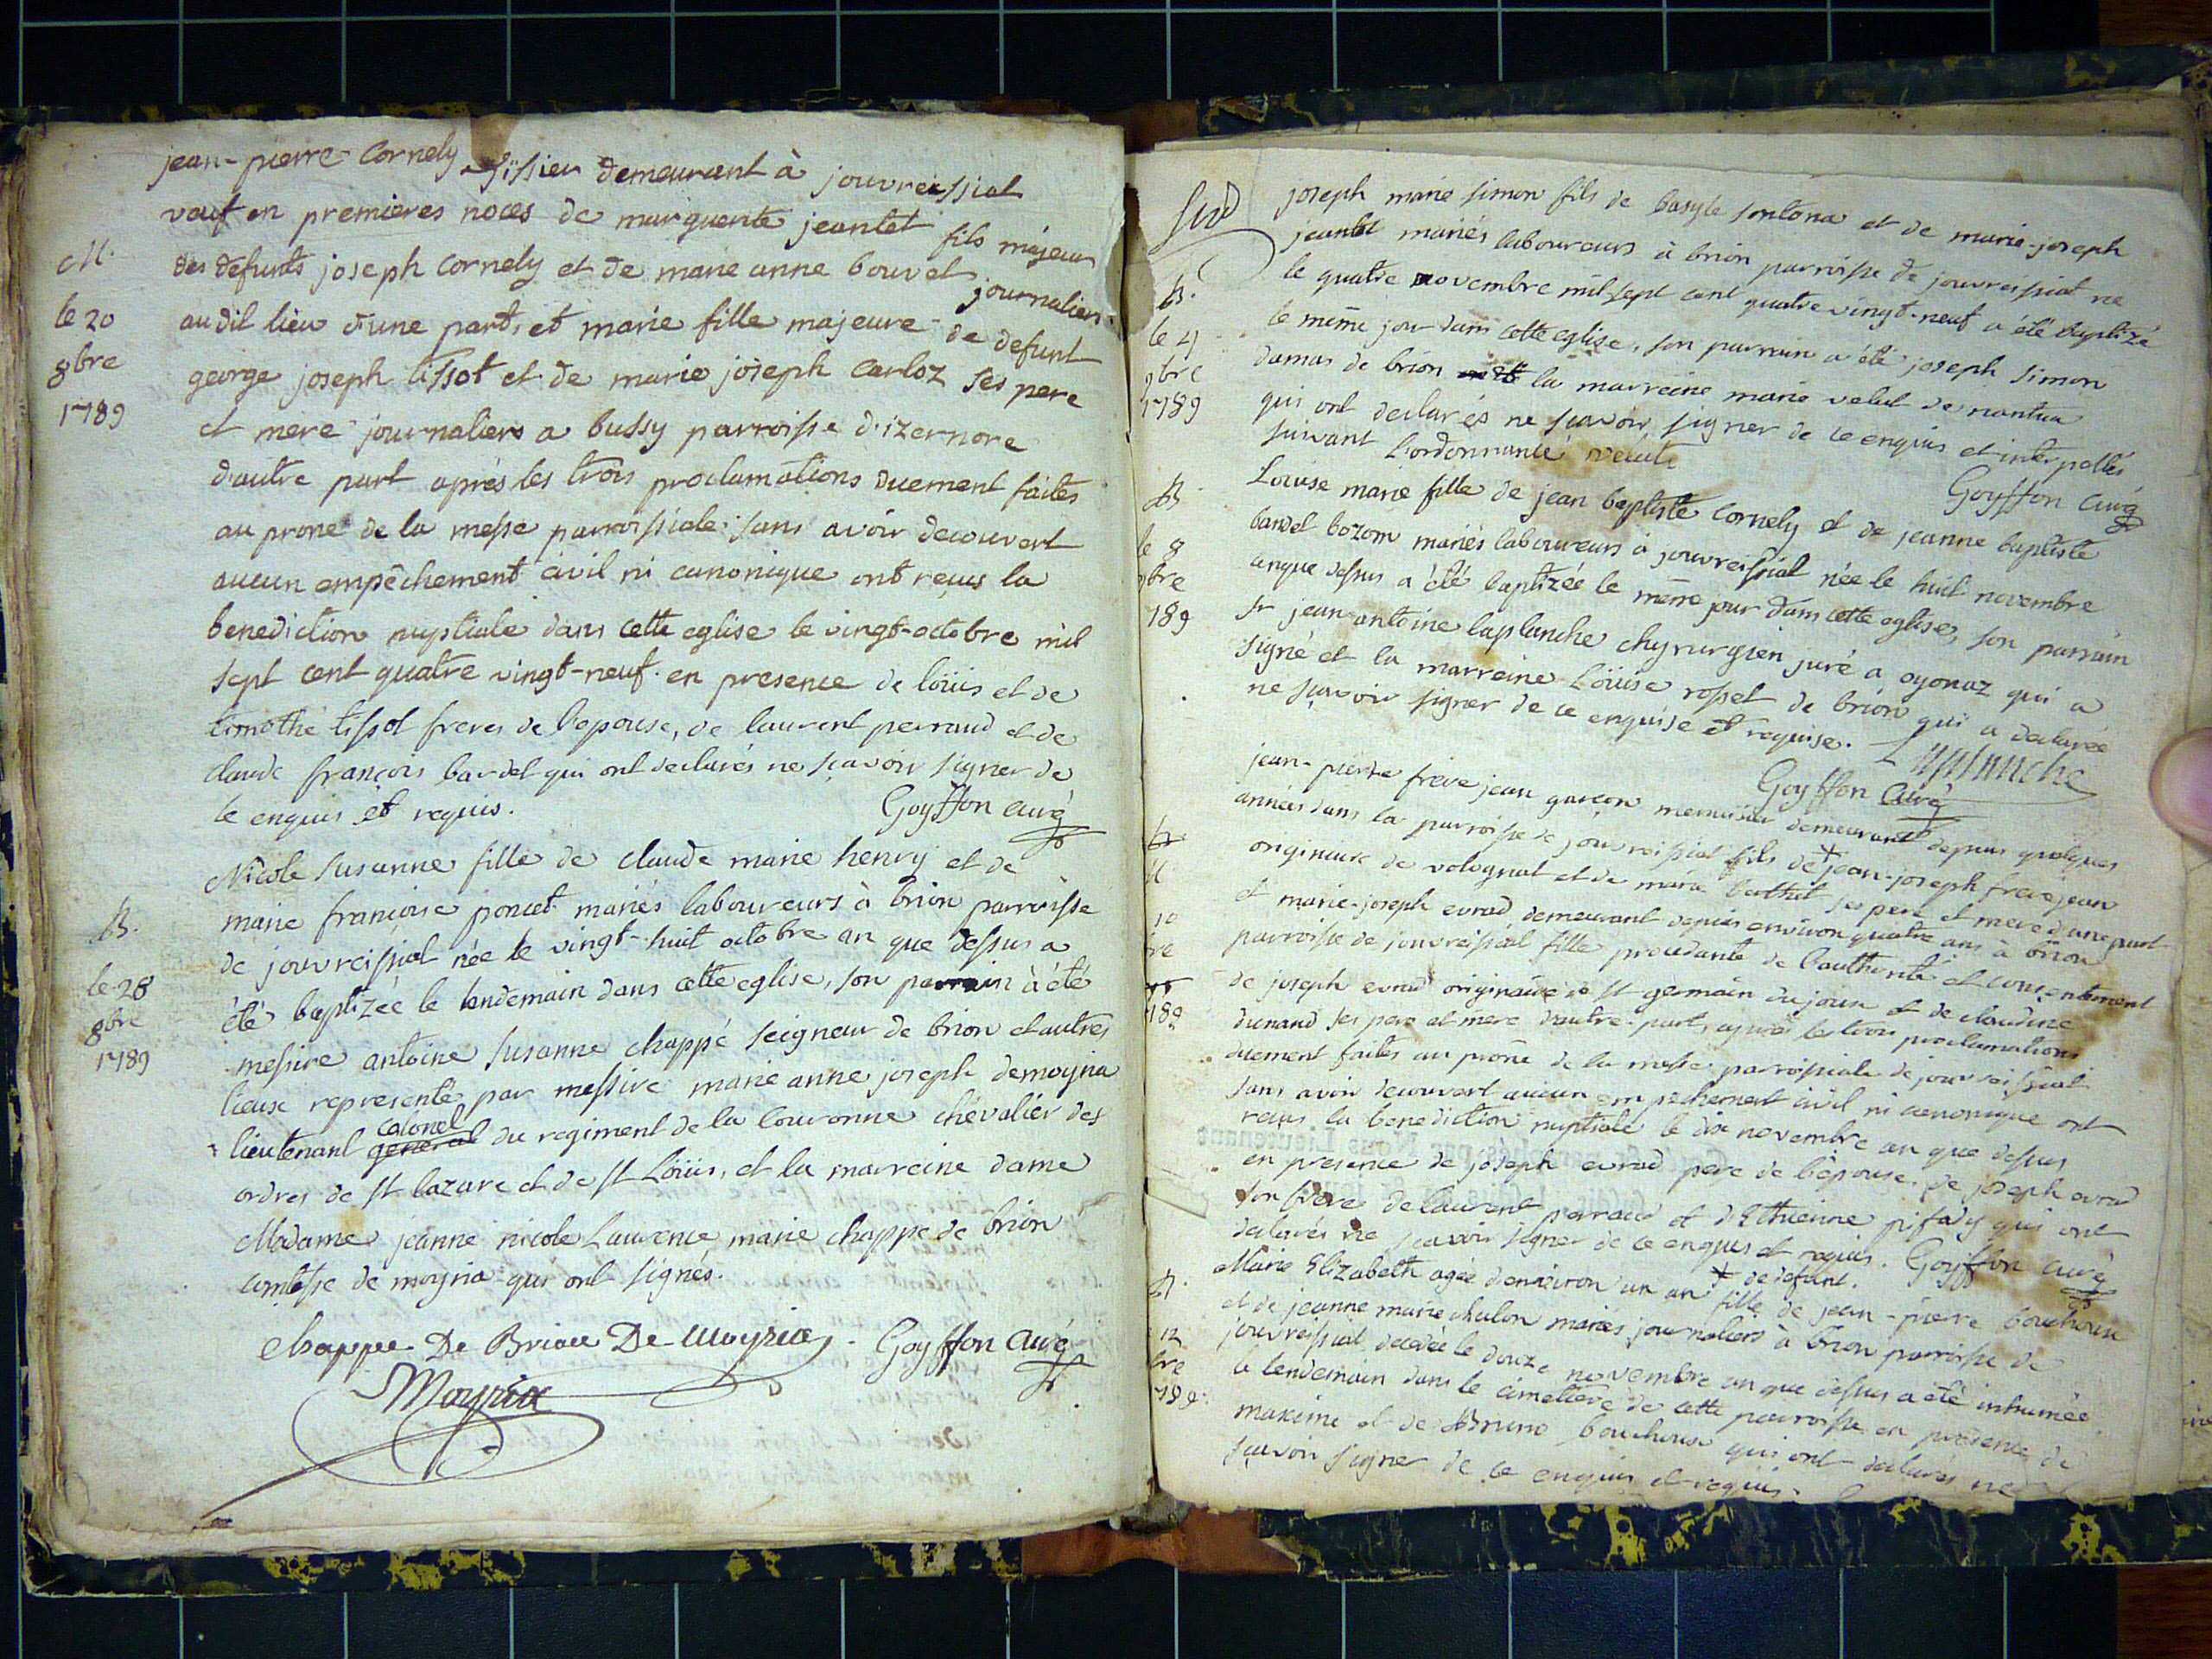 jean-pierre Cornely tissier demeurant à jouvreissiat
veuf en premieres noces de marguerite jeantet fils majeur
des defunts joseph Cornely et de marie anne bouvet journaliers
M.
le 20
8bre
1789
audit lieu d'une part, et marie fille majeure de defunt
george joseph tissot et de marie joseph Carloz ses pere
et mere journaliers a bussy parroisse d'izernore
d'autre part après les trois proclamations duement faites
au prone de la messe parroissiale sans avoir decouvert
aucun empêchement civil ni canonique ont reçus la
benediction nuptiale dans cette eglise le vingt-octobre mil
sept cent quatre vingt-neuf. en presence de loüis et de
timothé tissot freres de l'epouse, de laurent perraud et de
claude françois bardet qui ont declarés ne sçavoir signer de
ce enquis et requis. Goyffon curé
Nicole susanne fille de claude marie henry et de
marie françoise poncet mariés laboureurs à brion parroisse
de jouvreissiat née le vingt-huit octobre an que dessus a
B.
le 28
8bre
1789
été baptizée le lendemain dans cette eglise, son parrain à été
messire antoine susanne chappé seigneur de brion et autres
lieux representé par messire marie anne joseph demoyria
lieutenant general Colonel du regiment de la Couronne chevalier des
ordres de st lazare et de st Loüis, et la marreine dame
Madame jeanne nicole Laurence marie chappe de brion
comtesse de moyria qui ont signés.
chappe De Brion De Moyria Goyffon curé
Moyria
joseph marie simon fils de basyle sontona et de marie-joseph
jeantet mariés laboureurs à brion parroisse de jouvreissiat né
le quatre novembre mil sept cent quatre vingt-neuf a été baptizé
B.
le 4
9bre
1789
le même jour dans cette eglise, son parrain a été joseph simon
damas de brion la marreine marie velut de nantua
qui ont declarés ne scavoir signer de ce enquis et interpellés
suivant l'ordonnance
Goyffon curé
Loüise marie fille de jean baptiste Cornely et de jeanne baptiste
bardet bozom mariés laboureurs à jouvreissiat née le huit novembre
B.
le 8
9bre
189
an que dessus a été baptizée le même jour dans cette eglise, son parrain
sr jean antoine laplanche chyrurgien juré a oyonaz qui a
signé et la marreine Loüise rosset de brion qui a declarée
ne sçavoir signer de ce enquise et requise. Laplanche
Goyffon Curé
jean-pierre frerejean garçon menuisier demeurant depuis quelques
années dans la parroisse de jouvreissiat fils de + jean-joseph frerejean
originaire de volognat et de marie berthet ses pere et mere d'une part
M
10
189
et marie-joseph evrad demeurant depuis environ quatre ans à brion
parroisse de jouvreissiat fille procedante de l'authorité et consentement
de joseph evrad originaire de st germain de joux et de claudine
dunand ses pere et mere d'autre part, après les trois proclamations
duement faites au prone de la messe parroissiale de jouvreissiat
sans avoir decouvert aucun empechement civil ni canonique ont
reçus la benediction nuptiale le dix novembre an que dessus
en presence de joseph evrad pere de l'epouse de joseph evrad
son frere de laurent perraud et d'Ethienne pifady qui ont
declarés ne sçavoir signer de ce enquis et requis. Goyffon curé
+ de defunt.
Marie Elizabeth agée d'environ un an fille de jean-pierre bouchoux
et de jeanne marie chalon mariés journaliers à brion parroisse de
12
jouvreissiat decedée le douze novembre an que dessus a été inhumée
le lendemain dans le cimetiere de cette parroisse en presence de
maxime et de Bruno bouchoux qui ont declarés ne
sçavoir signer de ce enquis et requis.